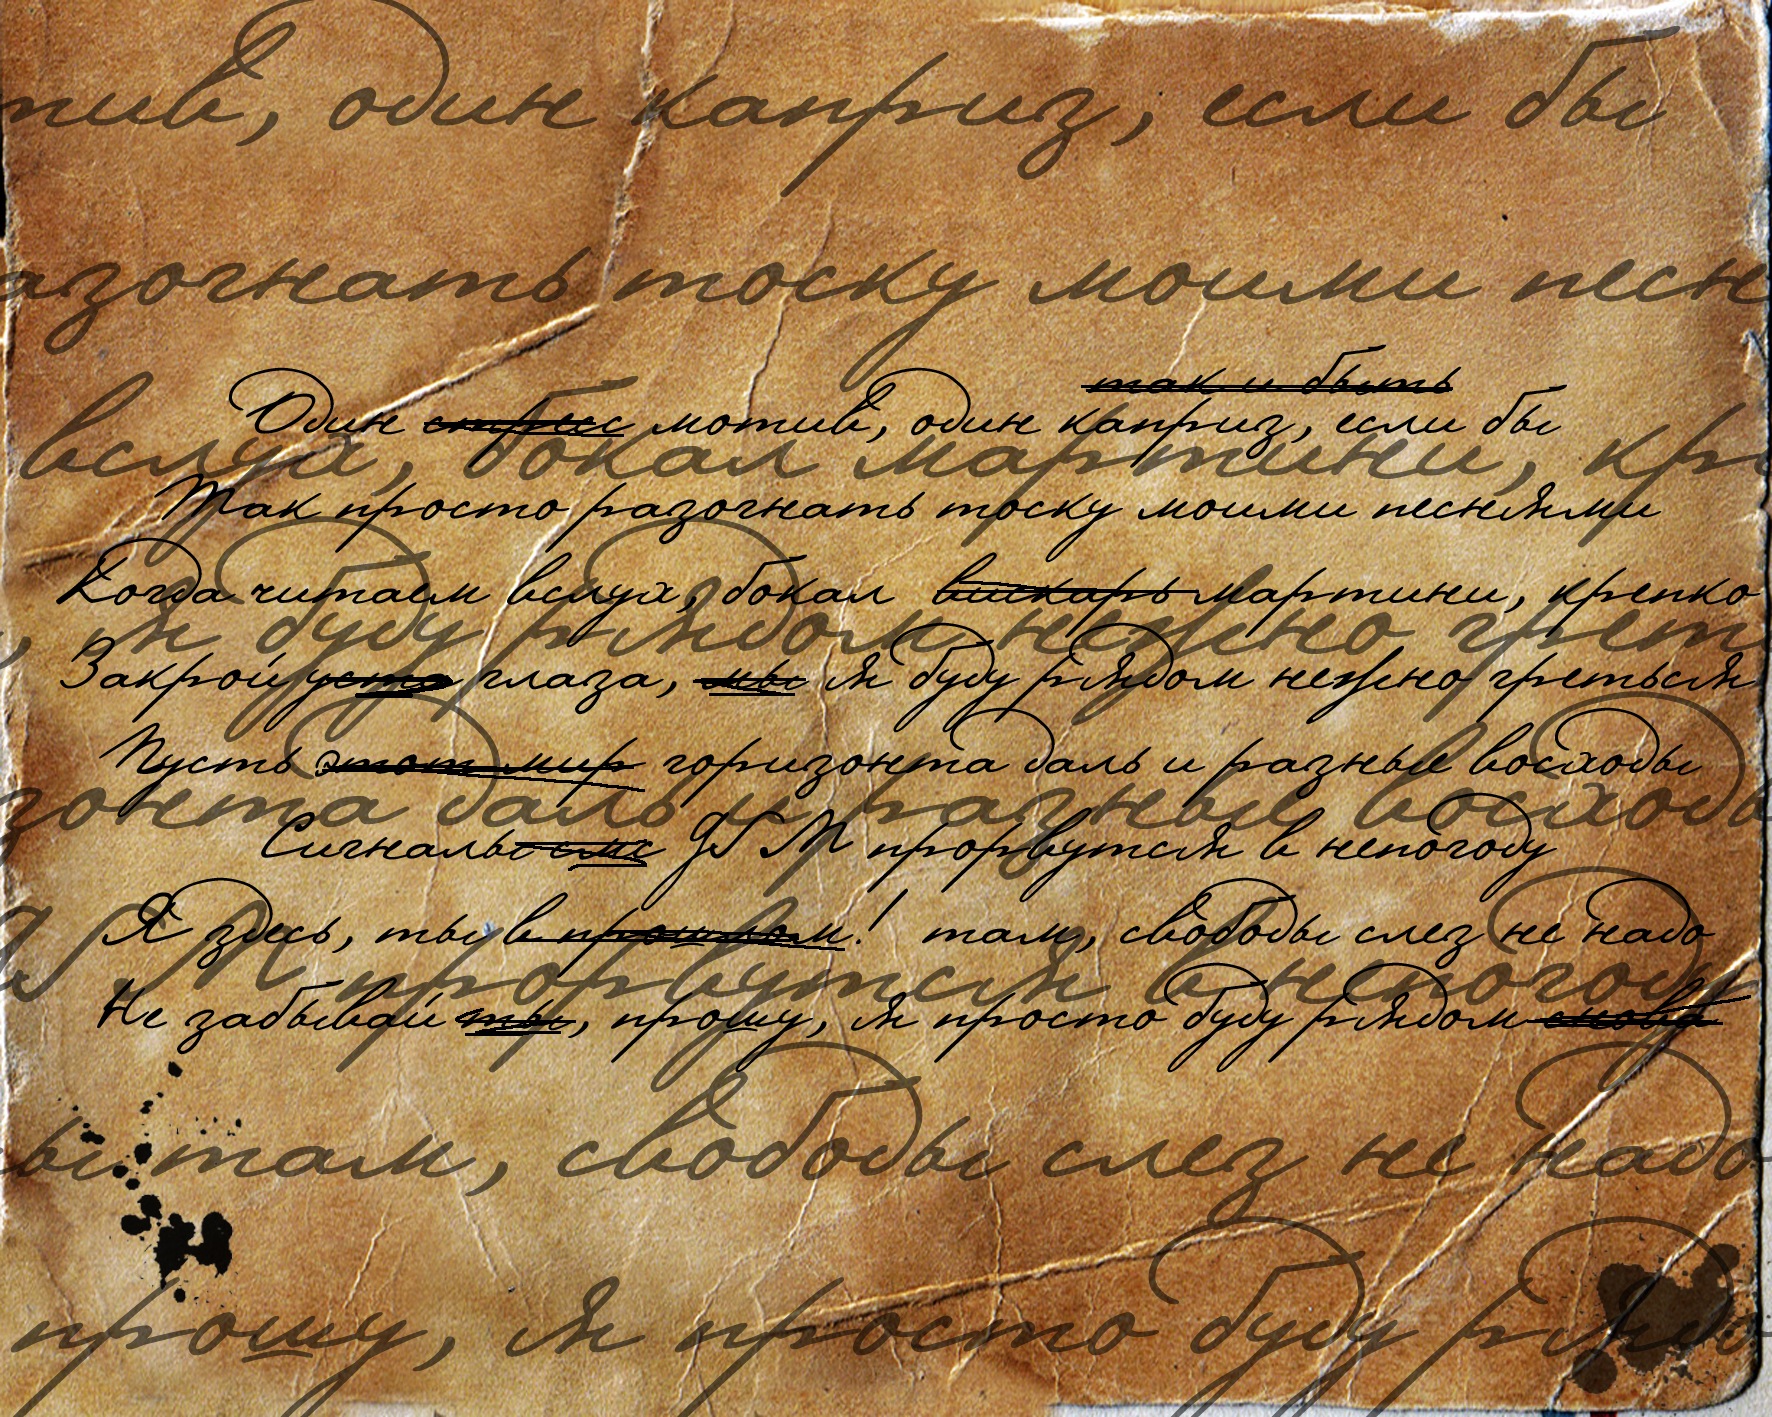 тив, один каприз, если бы
азогнать тоску моими песн
так и быть
Один стресс мотив, один каприз, если бы
вслух, бокал мартини, кре
Так просто разогнать тоску моими песнями
Когда читаем вслух, бокал вискарь мартини, крепко
, я буду рядом нежно грет
Закрой уста глаза, мы я буду рядом нежно греться
Пусть этот мир горизонта даль и разные восходы
зонта даль и разные восходы
Сигналы смс GSM прорвутся в непогоду
Я здесь, ты в прошлом! там, свободы слез не надо
SM прорвутся в непогоду
Не забывай ты, прошу, я просто буду рядом снова
ы там, свободы слез не надо
прошу, я просто буду рядо